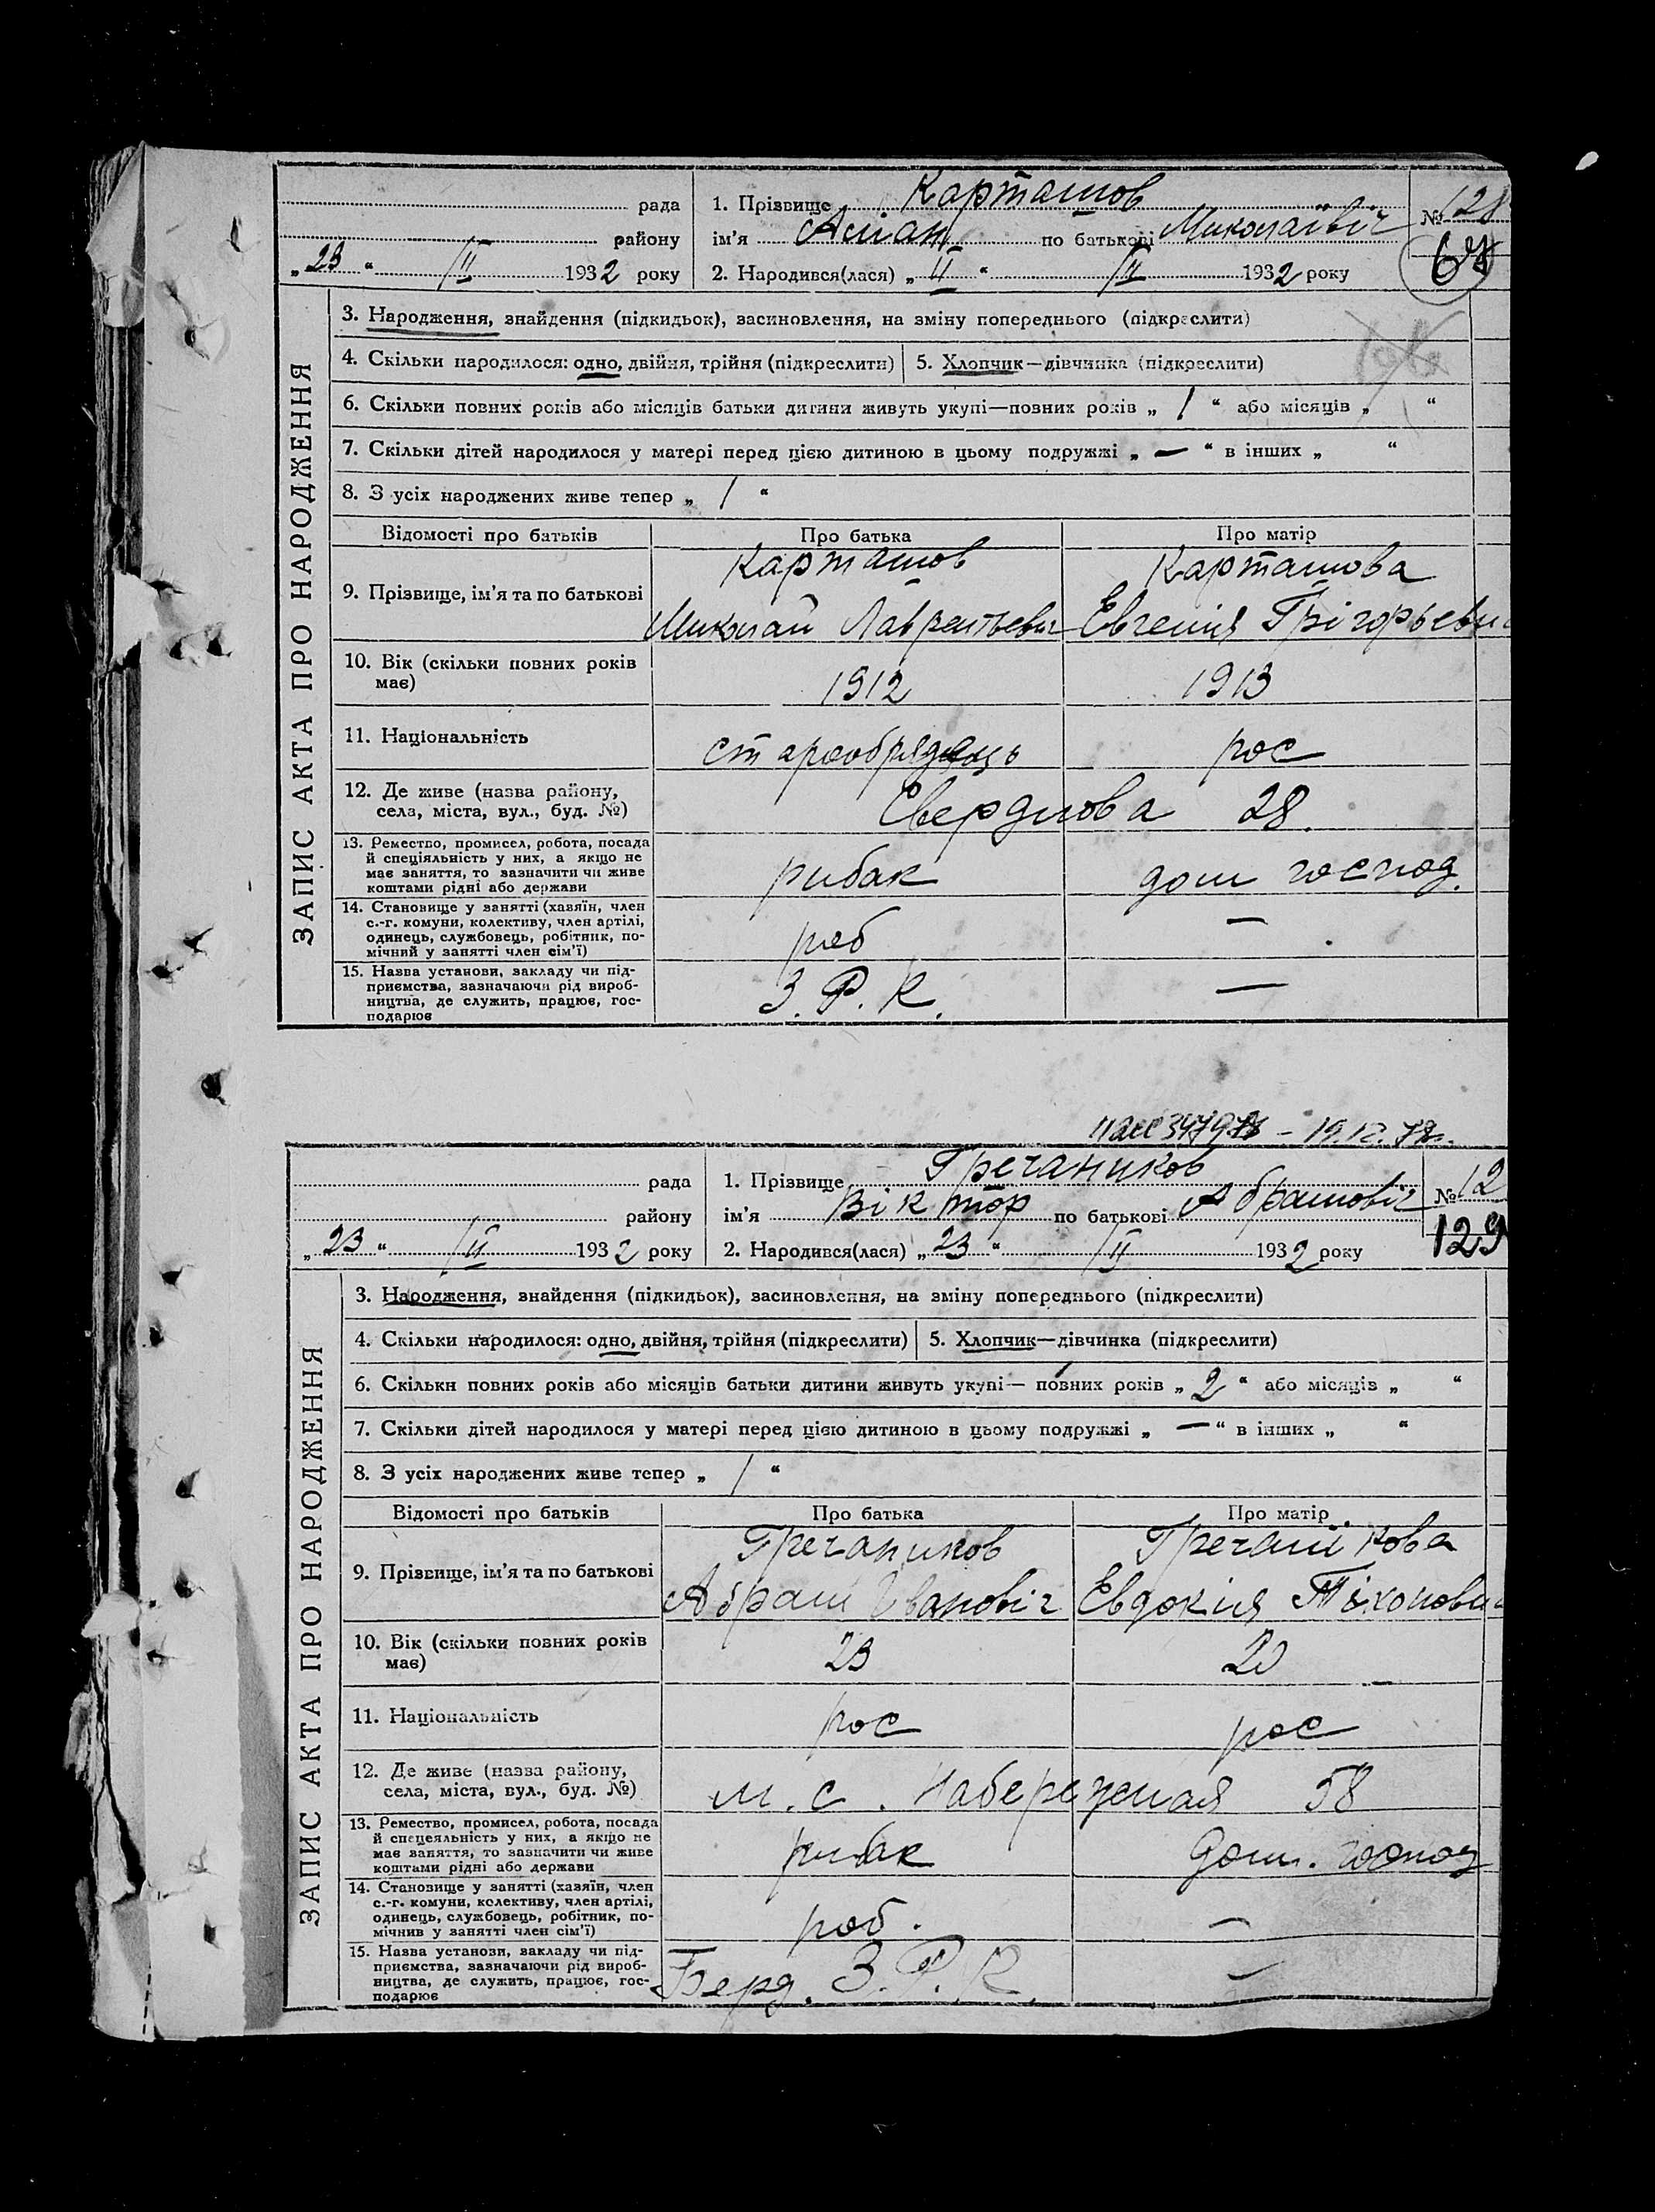 рада
району
„ 23 “ /II 1932 року
1. Прізвище Карташов
ім'я по батькові Миколаївіч
2. Народився(лася) „ II “ /II 1932 року
№ 128
68
ЗАПИС АКТА ПРО НАРОДЖЕННЯ
3. Народження, знайдення (підкидьок), засиновлення, на зміну попереднього (підкреслити)
4. Скільки народилося: одно, двійня, трійня (підкреслити) 5. Хлопчик—дівчинка (підкреслити)
6. Скільки повних років або місяців батьки дитини живуть укупі—повних років „ 1 “ або місяців „ “
7. Скільки дітей народилося у матері перед цією дитиною в цьому подружжі „ — “ в інших „ “
8. З усіх народжених живе тепер „ 1 “
Відомості про батьків Про батька Про матір
9. Прізвище, ім'я та по батькові
Карташов Карташова
Миколай Лаврентьевич Евгенія Грігорьевн
10. Вік (скільки повних років
має)
1912 1913
11. Національність старообрядець рос
12. Де живе (назва району,
села, міста, вул., буд. №)
Свердлова 28.
13. Ремество, промисел, робота, посада
й спеціяльність у них, а якщо не
має заняття, то зазначити чи живе
коштами рідні або держави
рибак дом господ.
14. Становище у занятті (хазяїн, член
с.-г. комуни, колективу, член артілі,
одинець, службовець, робітник, по-
мічний у занятті член сім'ї)
роб —
15. Назва установи, закладу чи під-
приємства, зазначаючи рід вироб-
ництва, де служить, працює, гос-
подарює
З. Р. К. —
19.12.
рада
району
„ 23 “ /II 1932 року
1. Прізвище Гречаников
ім'я Віктор по батькові Абрамовіч
2. Народився(лася) „ 23 “ /II 1932 року
№ 12
129
ЗАПИС АКТА ПРО НАРОДЖЕННЯ
3. Народження, знайдення (підкидьок), засиновлення, на зміну попереднього (підкреслити)
4. Скільки народилося: одно, двійня, трійня (підкреслити) 5. Хлопчик—дівчинка (підкреслити)
6. Скільки повних років або місяців батьки дитини живуть укупі— повних років „ 2 “ або місяців „ “
7. Скільки дітей народилося у матері перед цією дитиною в цьому подружжі „ — “ в інших „ “
8. З усіх народжених живе тепер „ 1 “
Відомості про батьків Про батька Про матір
9. Прізвище, ім'я та по батькові
Гречаников Гречанікова
Абрам Івановіч Евдокія Тіхоновн
10. Вік (скільки повних років
має)
23 20
11. Національність рос рос
12. Де живе (назва району,
села, міста, вул., буд. №)
м. с. Набережная 58
13. Ремество, промисел, робота, посада
й спецеяльність у них, а якщо не
має заняття, то зазначити чи живе
коштами рідні або держави
рибак дом. господ
14. Становище у занятті (хазяїн, член
с.-г. комуни, колективу, член артілі,
одинець, службовець, робітник, по-
мічнив у занятті член сім'ї)
роб. —
15. Назва установи, закладу чи під-
приємства, зазначаючи рід вироб-
ництва, де служить, працює, гос-
подарює
Берд. З. Р. К. —